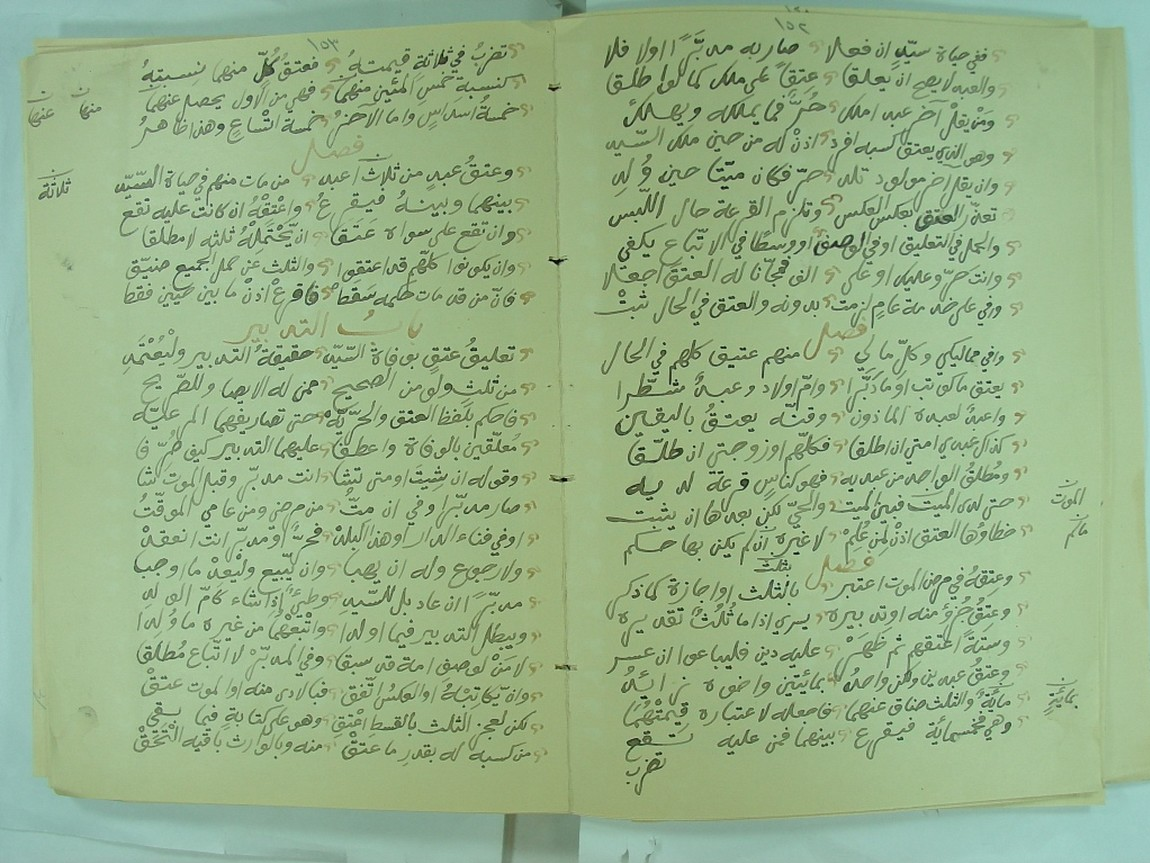 ١٥٢
ففي حياة سيد ان فعلا صار به مدبرا اولا فلا
والعبد لا يصح ان يعلقا عتقا على ملك كما لو اطلقا
ومن يقل آخر عبد املك حر فما يملكه ويهلك
وهو الذي يعتق كسبه افرد اذن له من حين ملك السيد
وان يقل اخر مولود تلد حر فكان ميتا حين ولد
تعذر العتق بعكس العكس وتلزم القرعة حال اللبس
والحمل في التعليق او في الوصف او وسطا في الاتباع يكفي
وانت حر وعليك او على الف فمجانا له العتق اجعلا
وفي على خدمة عام لزمت بدونه والعتق في الحال ثبت
فصل
وفي مماليكي وكل مالي منهم عتيق كلهم في الحال
يعتق مكاتب او ما دبرا وام اولاد وعبد شطرا
واعبد لعبده الماذون وقنه يعتق باليقين
كذاك عبدي امتي ان اطلقا فكلهم او زوجتي ان طلقا
ومطلق الواحد من عبديه فهو كناس قرعة لديه
حتى لدى الميت فبين الميت والحي لكن بعدها ان يثبت
خطاؤها العتق اذن لمن علم لا غيره ان لم يكن بها حكم
الموت
مالم
فصل
وعتقه في مرض الموت اعتبر بالثلث او اجازة كما ذكر
بثلث
وعتق جزؤ منه او تدبيره يسري اذا ما ثلث تقديره
وستة اعتقهم ثم ظهر عليه دين فليباعوا ان عسر
وعتق عبدين ولكن واحد بمائتين واخوه زائد
بمائتي
مائة والثلث ضاق عنهما فاجعله لاعتباره قيمتهما
وهي فخمسماية فيقرع بينهما فمن عليه تقع
تضرب
١٥٣
تضرب في ثلاثة قيمته فعتق كل منهما نسبته
كنسبة خمس المئين منهما فهي من الاول يحصل عنهما
منهما عنهما
خمسة اسداس واما الاخر خمسة اتساع وهذا ظاهر
فصل
وعتق عبد من ثلاث اعبد من مات منهم في حياة السيد
ثلاثة
بينهما وبينه فيقرع واعتقه ان كانت عليه تقع
وان تقع على سواه عتقا ان يحتمله ثلثه لا مطلقا
وان يكونوا كلهم قد اعتقوا والثلث عن حمل الجميع ضيق
فان من قد مات حكمه سقط فاقرع اذن ما بين حيين فقط
باب التدبير
تعليق عتق بوفاة السيد حقيقة التدبير وليعتمد
من ثلث ولو من الصحيح ممن له الايصا وللصريح
فاحكم بلفظ العتق والحرية حتى تصاريفهما المرعية
معلقين بالوفاة واعطف عليهما التدبير كيف صرف
وقوله ان شيت او متى تشا انت مدبر وقبل الموت شا
صار مدبرا وفي ان مت من مرضي ومن عامي الموقت
او في فناء الدار او هذا البلد فحر او مدبر انت انعقد
ولا رجوع وله ان يهبا وان يبيع وليعد ما اوجبا
مدبرا ان عاد بل للسيد وطئ اذا شاء كام الولد
ويبطل التدبير فيما اولدا واتبعهما من غيره ما ولدا
لا من لوصف امة قد سبقا وفي المدبر لا اتباع مطلقا
وان يكاتبه او العكس اتفق فبالادى منه او الموت عتق
لكن لعجز الثلث بالقسط اعتق وهو على كتابة فيما بقي
من كسبه له بقدر ما عتق منه وبالوارث باقيه التحق